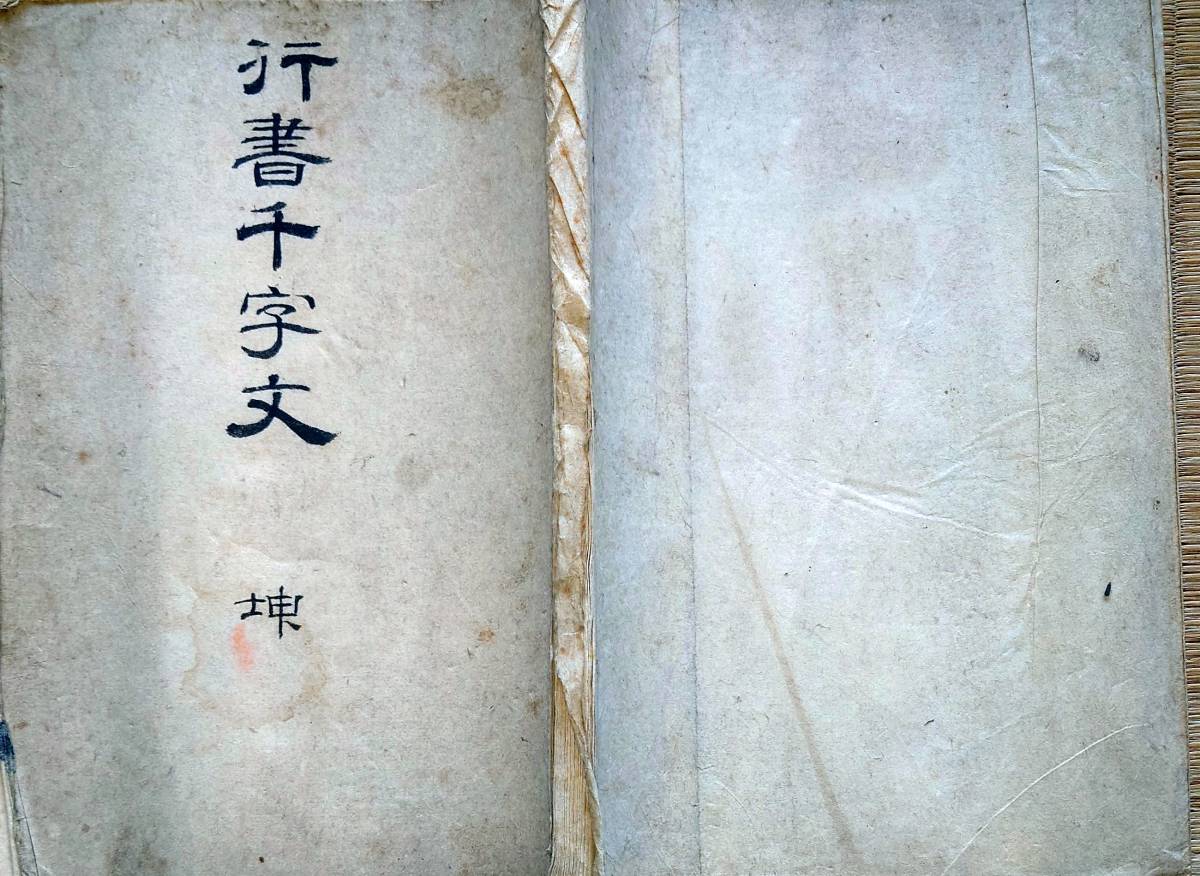 行書千字文
坤